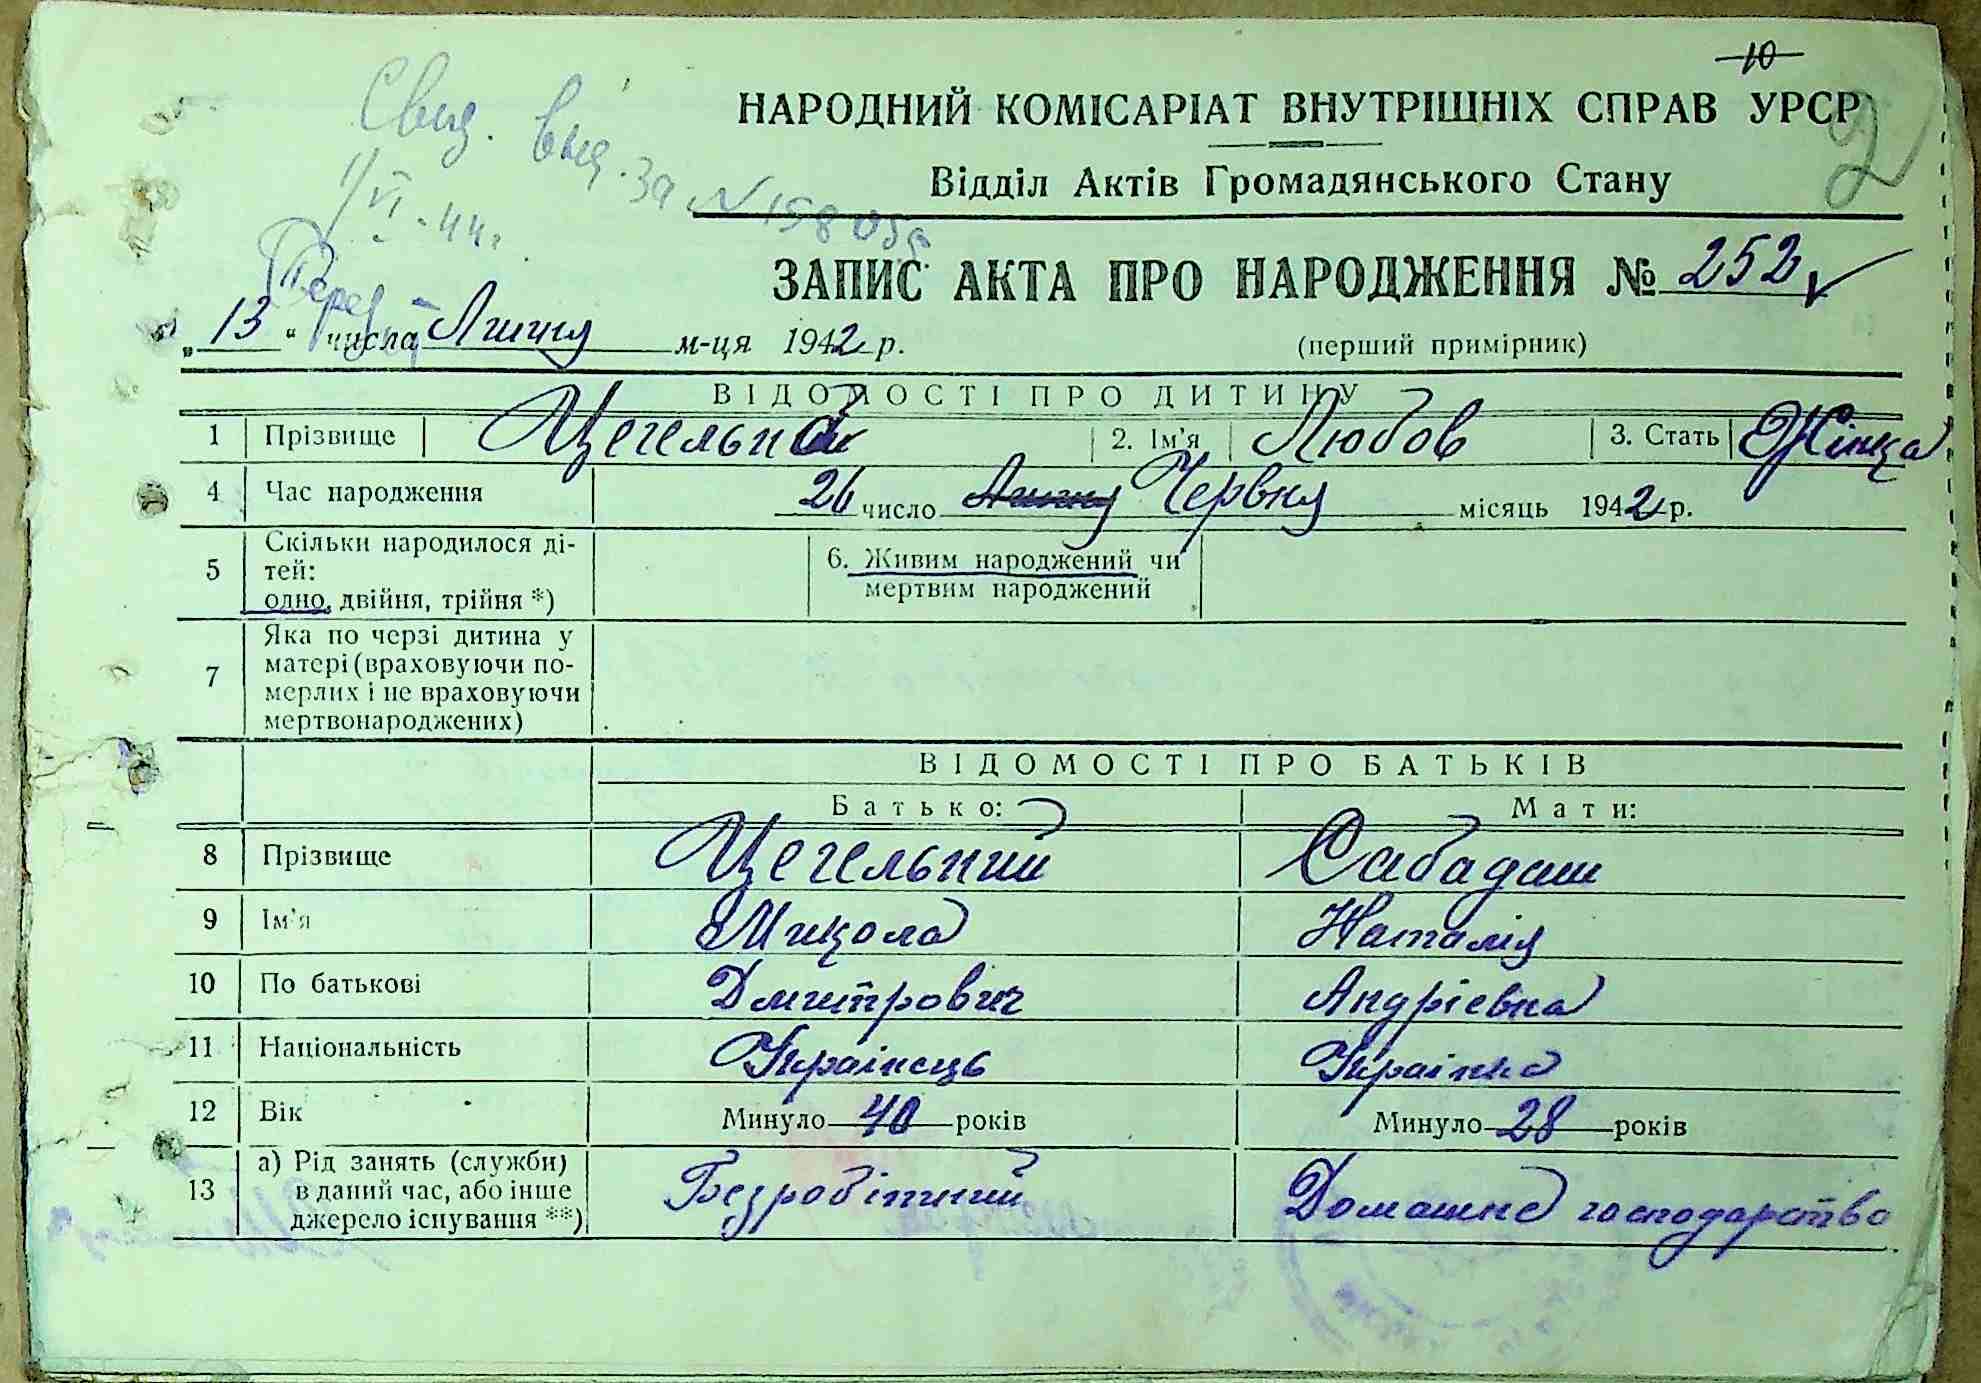 10
НАРОДНИЙ КОМІСАРІАТ ВНУТРІШНІХ СПРАВ УРСР
2
Відділ Актів Громадянського Стану
Свид. выд. за N 15803
1/VI-44г.
ЗАПИС АКТА ПРО НАРОДЖЕННЯ № 252
„ 13 “ числа Липня м-ця 1942 р. (перший примірник)
ВІДОМОСТІ ПРО ДИТИНУ
1 Прізвище Цегельна 2. Ім’я Любов 3. Стать Жінка
4 Час народження 26 число Липня Червня місяць 1942 р.
5 Скільки народилося ді-
тей:
одно, двійня, трійня *)
6. Живим народжений чи
мертвим народжений
7 Яка по черзі дитина у
матері (враховуючи по-
мерлих і не враховуючи
мертвонароджених)
ВІДОМОСТІ ПРО БАТЬКІВ
Батько: Мати:
8 Прізвище Цегельний Сабадаш
9 Ім’я Микола Наталія
10 По батькові Дмитрович Андрієвна
11 Національність Українець Українка
12 Вік Минуло 40 років Минуло 28 років
13 а) Рід занять (служби)
в даний час, або інше
джерело існування **)
Безробітний Домашнє господарство